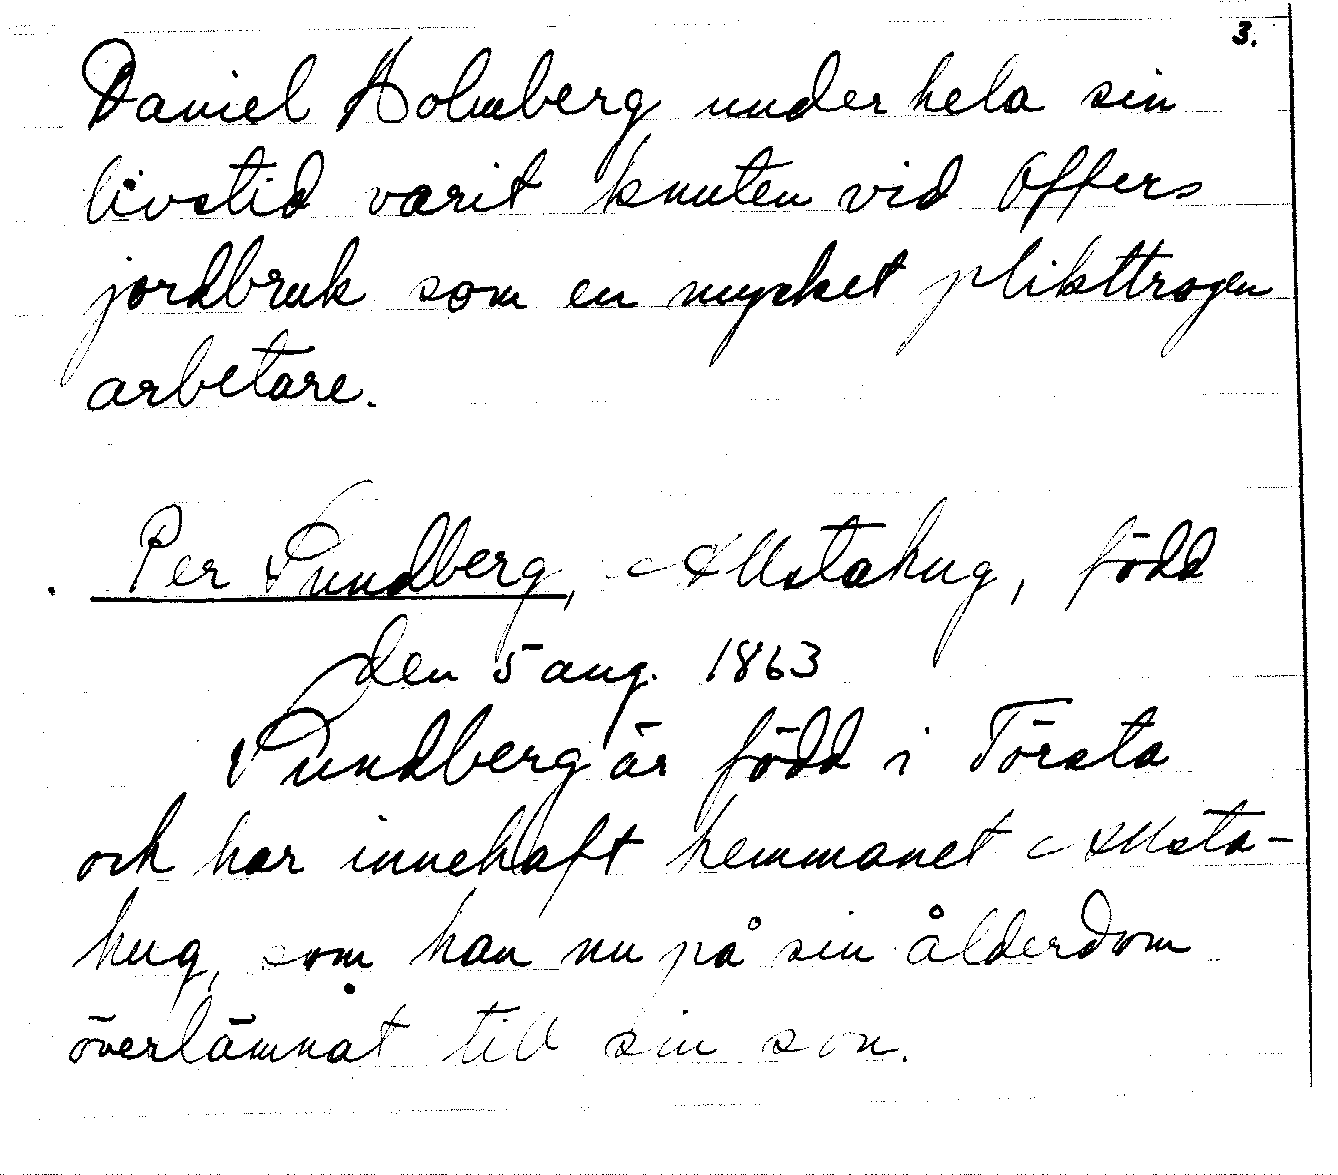 3.
Daniel Holmberg under hela sin
livstid varit knuten vid Offers
jordbruk som en mycket plikttrogen
arbetare.
Per Sundberg, Allstahug, född
den 5 aug. 1863
Sundberg är född i Törsta
och har innehaft hemmanet Allsta-
hug, som han nu på sin ålderdom
överlämnat till sin son.